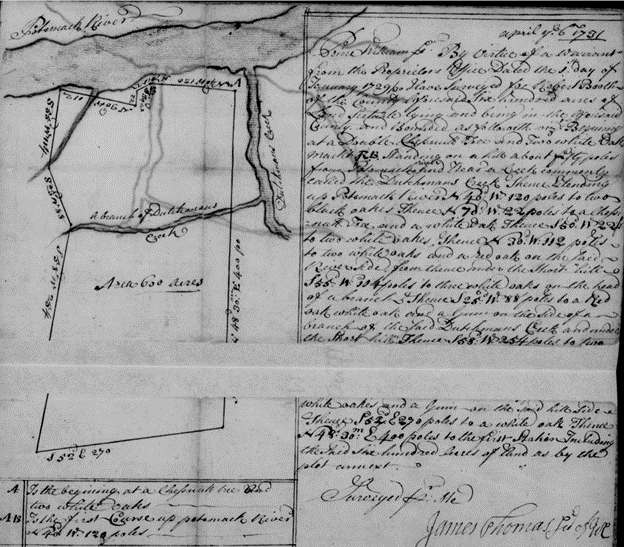 Potomack River
a branch of Dutchmans
Creek
Dutchmans Creek
Area 600 acres
N 48° 30' E 400 po
S 52 E 270
april ye 6th 1731
Prince William Ss. By Virtue of a Warrant
from the Proprietors Office Dated the day of
I have Surveyed for Robert Booth
of the County aforesaid Six hundred acres of
Land Scituate lying and being in the aforesaid
County and Bounded as followeth Begining
at a Double Chesnutt tree and two white oak
markt RB Standing on a hill about fifty poles
from Potomack and Near a Creek commonly
called the Dutchmans Creek Thence Extending
up Potomack River N 40 W 120 poles to two
black oakes Thence N 70 W 22 poles to a Ches
nutt tree and a white oak Thence S 60 W 22
to two white oakes, Thence N 30 W 112 poles
to two white oakes and a red oak on the said
River side, from thence under the Short hills
S 55 W 304 poles to three white oaks on the head
of a branch Thence S 20 W 88 poles to a Red
oak white oak and a Gum on the side of a
branch of the said Dutchmans Creek and under
the Short hills Thence S 58 W 254 poles to two
white oakes and a Gum on the said hill side
Thence S 52 E 270 poles to a white oak Thence
N 48° 30m E 400 poles to the first Station Including
the said six hundred Acres of Land as by the
plot annext
Surveyed pr. Me
James Thomas
A Is the begining at a Chesnutt tree and
two white oaks
AB Is the first Course up potomack River
N 40 W 120 poles